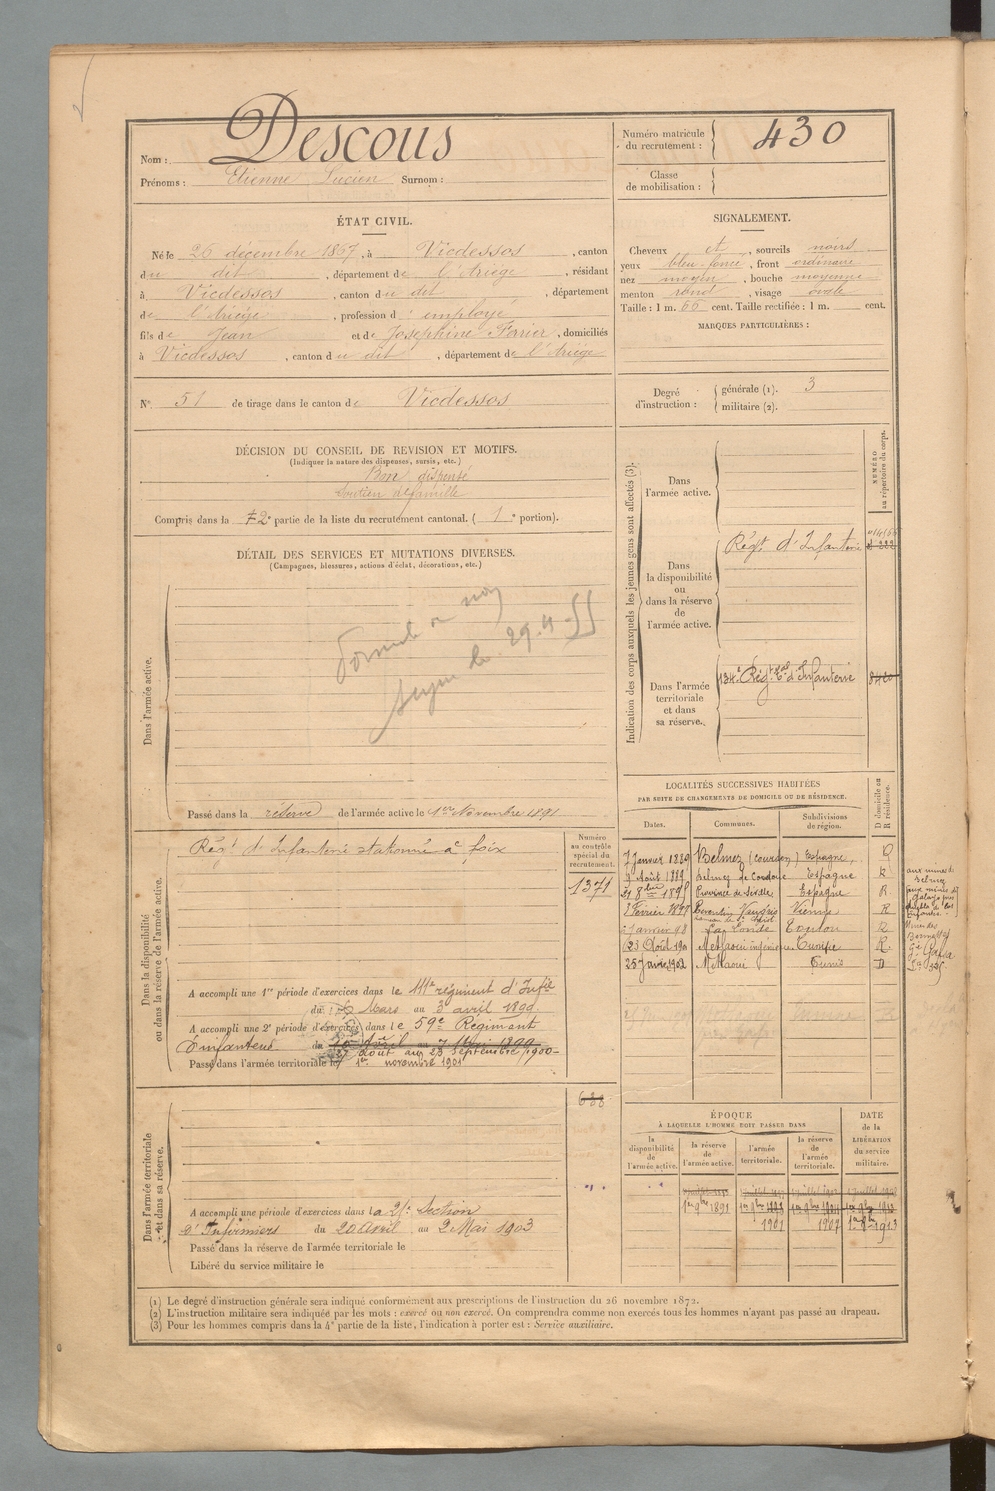 Nom : Descous
Prénoms : Etienne Lucien Surnom :
Numéro matricule du recrutement : 430
Classe de mobilisation :
ÉTAT CIVIL.
Né le 26 décembre 1867, à Vicdessos, canton
du dit, département de l'Ariège, résidant
à Vicdessos, canton du dit, département
de l'Ariège, profession d' employé
fils de Jean et de Josephine Ferrier, domiciliés
à Vicdessos, canton du dit, département de l'Ariège
N° 51 de tirage dans le canton de Vicdessos
SIGNALEMENT.
Cheveux et, sourcils noirs
yeux bleu foncé, front ordinaire
nez moyen, bouche moyenne
menton rond, visage ovale
Taille : 1 m. 66 cent. Taille rectifiée : 1 m. cent.
MARQUES PARTICULIÈRES :
Degré d'instruction : générale (1). 3
militaire (2).
DÉCISION DU CONSEIL DE REVISION ET MOTIFS.
(Indiquer la nature des dispenses, sursis, etc.)
Bon dispensé
Soutien de famille
Compris dans la 2e partie de la liste du recrutement cantonal. ( 1e portion).
DÉTAIL DES SERVICES ET MUTATIONS DIVERSES.
(Campagnes, blessures, actions d'éclat, décorations, etc.)
Dans l'armée active.
Passé dans la réserve de l'armée active le 1er Novembre 1891
Indication des corps auxquels les jeunes gens sont affectés (3).
NUMÉRO au répertoire du corps.
Dans l'armée active.
Dans la disponibilité ou dans la réserve de l'armée active.
Régt d'Infanterie
Dans l'armée territoriale et dans sa réserve.
134e Régt tal d'Infanterie
Dans la disponibilité ou dans la réserve de l'armée active.
Numéro au contrôle spécial du recrutement.
Régt d'Infanterie stationné à foix
1371
A accompli une 1re période d'exercices dans le 111e régiment d'Infie
du 6 Mars au 3 avril 1899
A accompli une 2e période d'exercices dans le 59e Régiment
d'infanterie du 10 Avril au 7 Mai 1899
27 août au 23 septembre 1900
Passé dans l'armée territoriale le 1er novembre 1901
LOCALITÉS SUCCESSIVES HABITÉES
PAR SUITE DE CHANGEMENTS DE DOMICILE OU DE RÉSIDENCE.
Dates. Communes. Subdivisions de région. D domicile ou R résidence.
7 Janvier 1889 Belmez (Courdou) Espagne, R
9 Août 1889 Belmez de Cordoue Espagne R
21 8bre 1895 Province de Séville Espagne R
2 Février 1897 Vienne R
Janvier 98 La Londe Toulon R
23 Août 190 Metlaoui ingénieur Tunisie R.
25 Janvier 1902 Metlaoui Tunis D
Dans l'armée territoriale et dans sa réserve.
688
A accompli une période d'exercices dans la 21e Section
d'Infirmiers du 20 Avril au 2 Mai 1903
Passé dans la réserve de l'armée territoriale le
Libéré du service militaire le
ÉPOQUE
À LAQUELLE L'HOMME DOIT PASSER DANS
la disponibilité de l'armée active. la réserve de l'armée active. l'armée territoriale. la réserve de l'armée territoriale.
DATE de la LIBÉRATION du service militaire.
1er 9bre 1891
1901 1907 1er 9bre 1913
(1) Le degré d'instruction générale sera indiqué conformément aux prescriptions de l'instruction du 26 novembre 1872.
(2) L'instruction militaire sera indiquée par les mots : exercé ou non exercé. On comprendra comme non exercés tous les hommes n'ayant pas passé au drapeau.
(3) Pour les hommes compris dans la 4e partie de la liste, l'indication à porter est : Service auxiliaire.